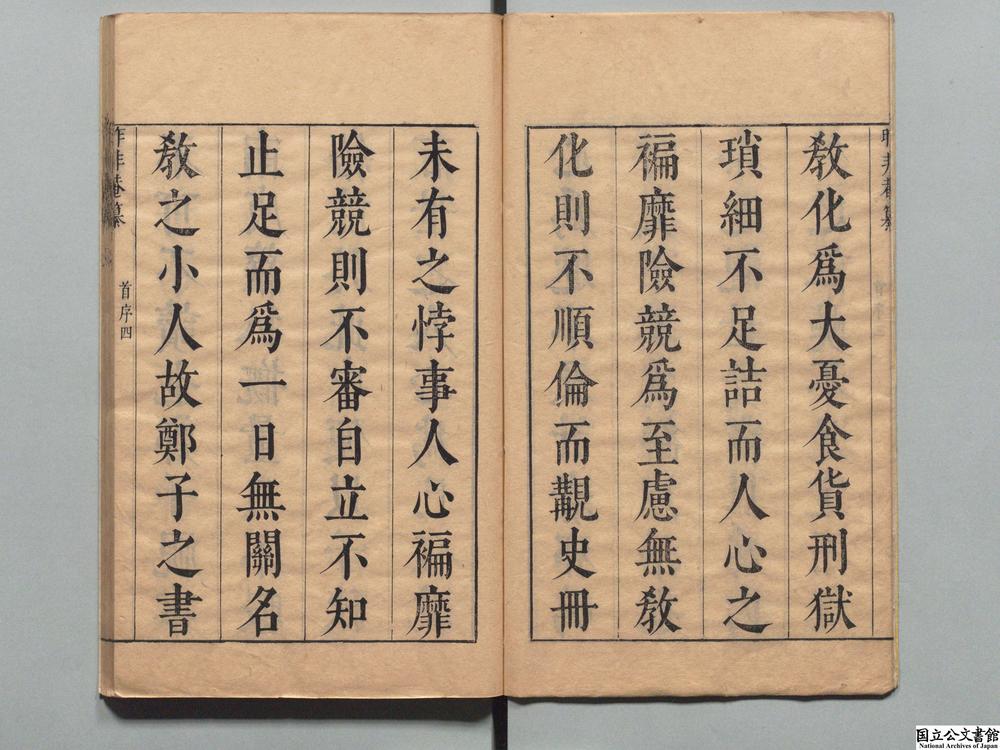 教化爲大憂食貨刑獄
瑣細不足詰而人心之
褊靡險競爲至慮無教
化則不順倫而觏史冊
未有之悖事人心褊靡
險競則不審自立不知
止足而爲一日無關名
教之小人故鄭子之書
昨非菴纂
首序四
国立公文書館
National Archives of Japan